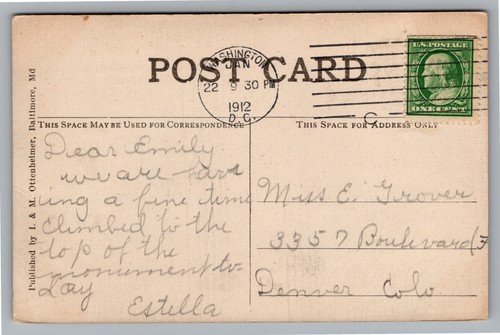 POST CARD
WASHINGTON
JAN
22 9 30 PM
1912
D.C.
C
U.S. POSTAGE
ONE CENT
THIS SPACE MAY BE USED FOR CORRESPONDENCE
THIS SPACE FOR ADDRESS ONLY
Published by I. & M. Ottenheimer, Baltimore, Md
Dear Emily
we are hav
ing a fine time
climbed to the
top of the
monument to-
day
Estella
Miss E. Grover
3357 Boulevard F
Denver Colo.